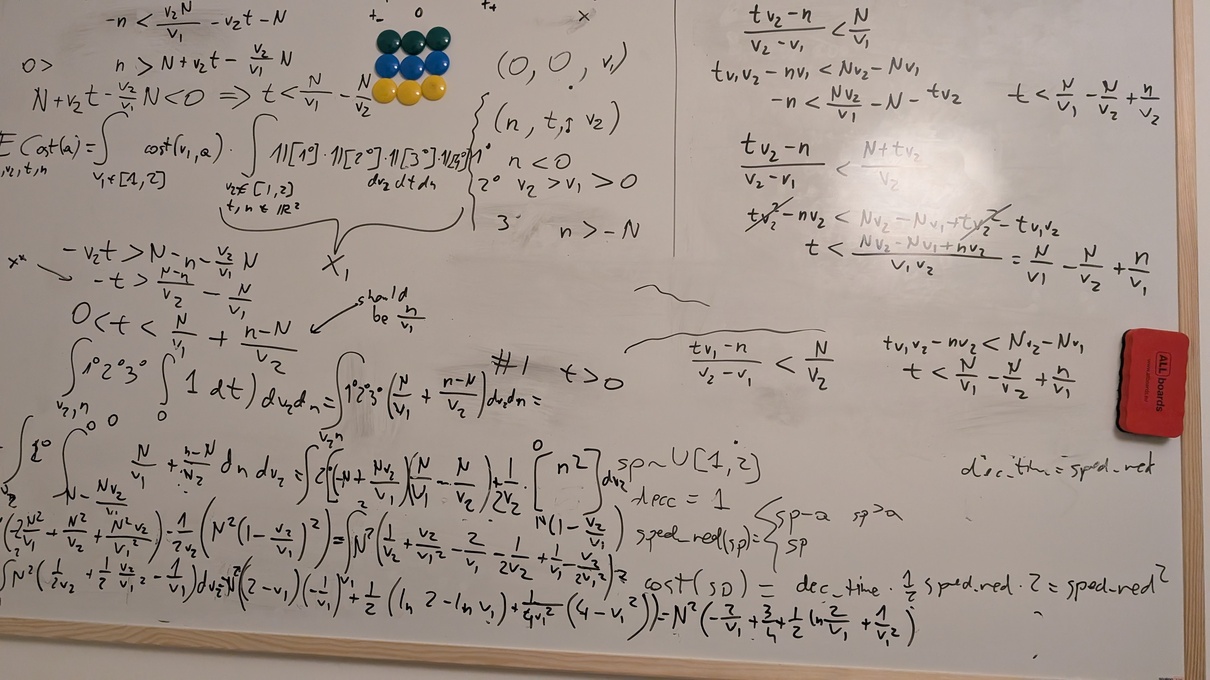 -n < \frac{v_2 N}{v_1} - v_2 t - N
0 > n > N + v_2 t - \frac{v_2}{v_1} N
N + v_2 t - \frac{v_2}{v_1} N < 0 => t < \frac{N}{v_1} - \frac{N}{v_2}
+_- 0 ++
x
(0, 0, v_1)
(n, t, v_2)
1° n < 0
2° v_2 > v_1 > 0
3° n > -N
E cost(a) = ∫ cost(v_1, a) · ∫ 1[1°] · 1[2°] · 1[3°] · 1[4°]
v_2, t, n
v_1 ∈ [1,2]
v_2 ∈ [1,2]
t, n ∈ ℝ²
dv_2 dt dn
X_1
x*
-v_2 t > N - n - \frac{v_2}{v_1} N
-t > \frac{N-n}{v_2} - \frac{N}{v_1}
0 < t < \frac{N}{v_1} + \frac{n-N}{v_2}
should be \frac{n}{v_1}
∫_{v_2,n} 1°2°3° ∫_0 1 dt) dv_2 dn = ∫_{v_2 n} 1°2°3° (\frac{N}{v_1} + \frac{n-N}{v_2}) dv_2 dn =
∫_{v_2} 2° ∫_{N - \frac{N v_2}{v_1}}^0 \frac{N}{v_1} + \frac{n-N}{v_2} dn dv_2 = ∫ 2° [(-N + \frac{N v_2}{v_1})(\frac{N}{v_1} - \frac{N}{v_2}) + \frac{1}{2v_2} · [n^2]_{N(1 - \frac{v_2}{v_1})}^0 dv_2
(-\frac{2N^2}{v_1} + \frac{N^2}{v_2} + \frac{N^2 v_2}{v_1^2}) - \frac{1}{2v_2} (N^2 (1 - \frac{v_2}{v_1})^2) = ∫_{v_1}^2 N^2 (\frac{1}{v_2} + \frac{v_2}{v_1^2} - \frac{2}{v_1} - \frac{1}{2v_2} + \frac{1}{v_1} - \frac{v_2}{2v_1^2}) =
∫ N^2 (\frac{1}{2v_2} + \frac{1}{2} \frac{v_2}{v_1^2} - \frac{1}{v_1}) dv_2 = N^2 ((2 - v_1)(-\frac{1}{v_1}) + \frac{1}{2} (ln 2 - ln v_1) + \frac{1}{4v_1^2} (4 - v_1^2)) = N^2 (-\frac{2}{v_1} + \frac{3}{4} + \frac{1}{2} ln \frac{2}{v_1} + \frac{1}{v_1^2})
\frac{t v_2 - n}{v_2 - v_1} < \frac{N}{v_1}
t v_1 v_2 - n v_1 < N v_2 - N v_1
-n < \frac{N v_2}{v_1} - N - t v_2
t < \frac{N}{v_1} - \frac{N}{v_2} + \frac{n}{v_2}
\frac{t v_2 - n}{v_2 - v_1} < \frac{N + t v_2}{v_2}
t v_2^2 - n v_2 < N v_2 - N v_1 + t v_2^2 - t v_1 v_2
t < \frac{N v_2 - N v_1 + n v_2}{v_1 v_2} = \frac{N}{v_1} - \frac{N}{v_2} + \frac{n}{v_1}
#1 t > 0
\frac{t v_1 - n}{v_2 - v_1} < \frac{N}{v_2}
t v_1 v_2 - n v_2 < N v_2 - N v_1
t < \frac{N}{v_1} - \frac{N}{v_2} + \frac{n}{v_1}
ALL boards
sp ~ U[1,2]
decc = 1
sped_red(sp) = { sp - a sp > a
sp
dec_time = sped_red
cost(sp) = dec_time · \frac{1}{2} sped_red · 2 = sped_red^2